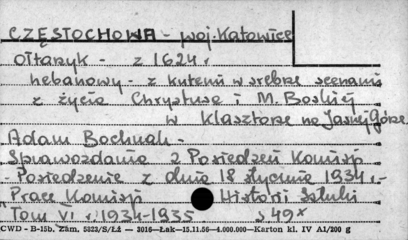 CZĘSTOCHOWA - woj. Katowice
Ołtarzyk - z 1624 r
hebanowy - z kutemi w srebrze scenami
z życia Chrystusa i M. Boskiej
w klasztorze na Jasnej Górze
Adam Bochnak -
Sprawozdania z Posiedzeń Komisji
- Posiedzenie z dnia 18 stycznia 1934 r.-
Prace Komisji Historii Sztuki
Tom VI r. 1934-1935 s 49*
CWD - B-15b. Zam. 5822/S/Lż — 3016—Łak—15.11.56—4.000.000—Karton kl. IV A1/200 g